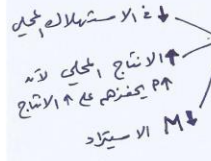 ↓ في الاستهلاك المحلي
↑ الانتاج المحلي لأنه
P↑ يحفزهم على ↑ الانتاج
↓M الاستيراد